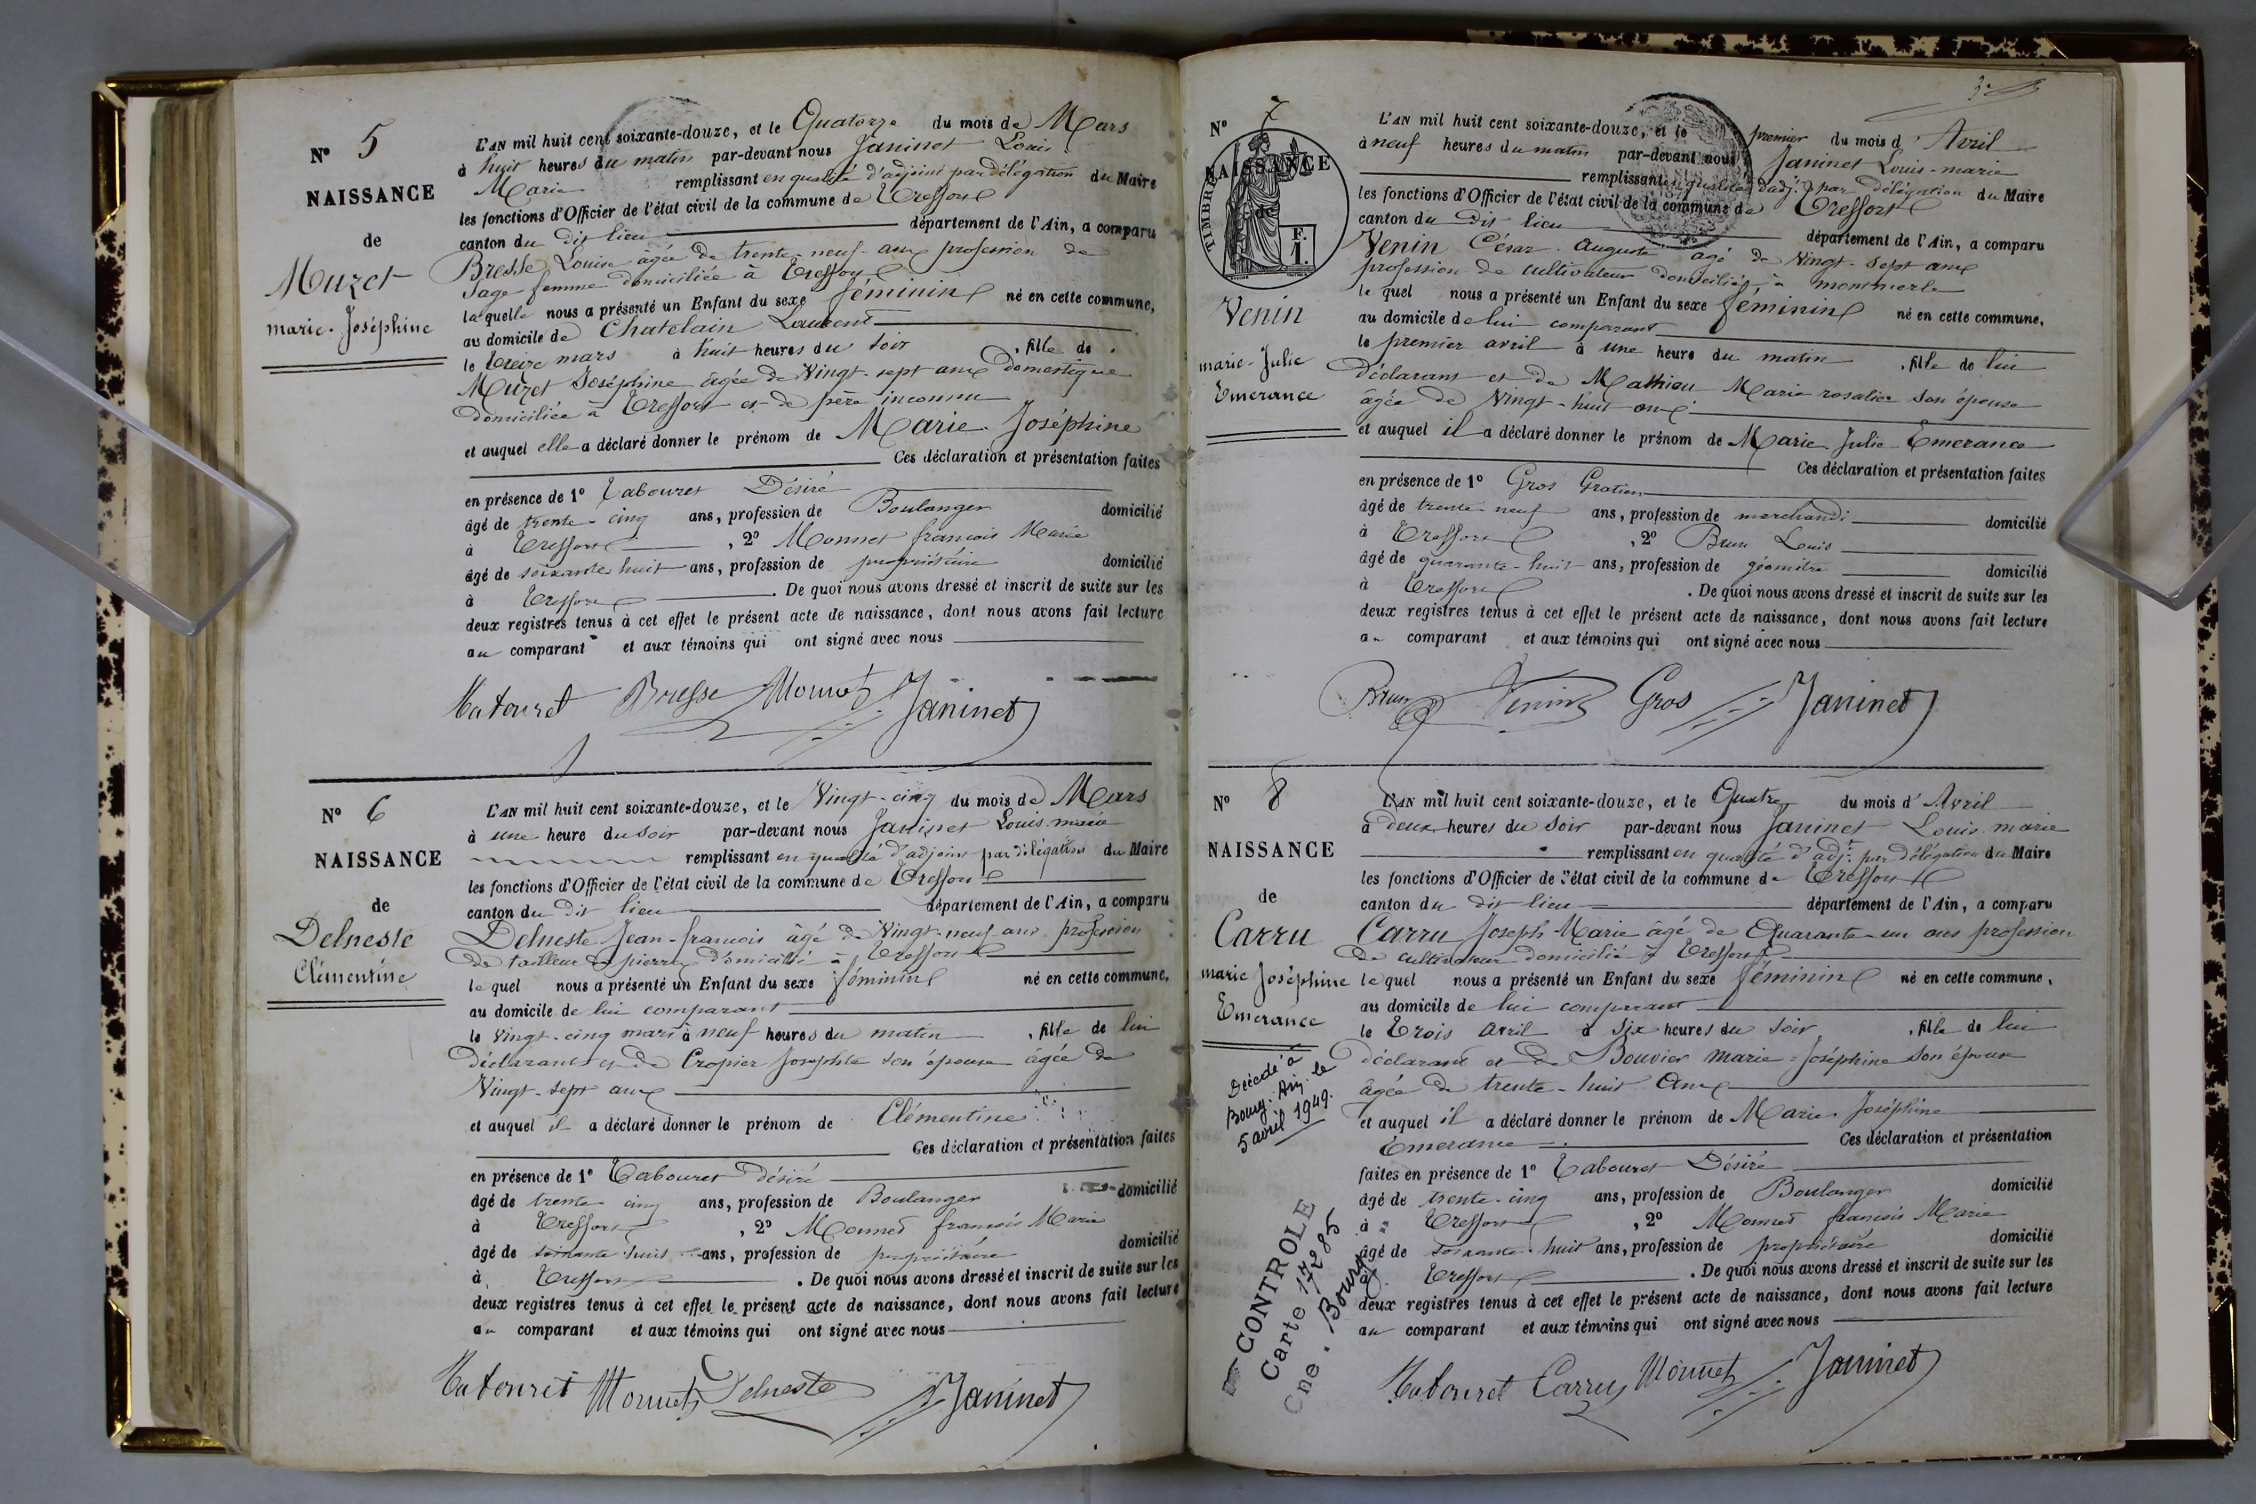 N° 5
NAISSANCE
de
Muzet
marie. Joséphine
L'AN mil huit cent soixante-douze, et le Quatorze du mois de Mars
à huit heures du matin par-devant nous Janinet Louis
Marie remplissant en qualité d'adjoint par délégation du Maire
les fonctions d'Officier de l'état civil de la commune de Treffort
canton du dit lieu département de l'Ain, a comparu
Bresse Louise agée de trente-neuf ans profession de
Sage femme domiciliée à Treffort
laquelle nous a présenté un Enfant du sexe féminin né en cette commune,
au domicile de Chatelain Laurent
le treize mars à huit heures du soir , fille de
Muzet Joséphine âgée de Vingt-sept ans Domestique
domiciliée à Treffort et de père inconnu
et auquel elle a déclaré donner le prénom de Marie Joséphine
Ces déclaration et présentation faites
en présence de 1° Tabouret Désiré
âgé de trente-cinq ans, profession de Boulanger domicilié
à Treffort , 2° Monnet francois Marie
âgé de soixante huit ans, profession de propriétaire domicilié
à Treffort . De quoi nous avons dressé et inscrit de suite sur les
deux registres tenus à cet effet le présent acte de naissance, dont nous avons fait lecture
au comparant et aux témoins qui ont signé avec nous
Tabouret Bresse Monnet Janinet
N° 6
NAISSANCE
de
Delneste
Clémentine
L'AN mil huit cent soixante-douze, et le Vingt-cinq du mois de Mars
à une heure du soir par-devant nous Janinet Louis marie
remplissant en qualité d'adjoint par délégation du Maire
les fonctions d'Officier de l'état civil de la commune de Treffort
canton du dit lieu département de l'Ain, a comparu
Delneste Jean-francois âgé de Vingt-neuf ans profession
de tailleur de pierre domicilié à Treffort
lequel nous a présenté un Enfant du sexe féminin né en cette commune,
au domicile de lui comparant
le Vingt-cinq mars à neuf heures du matin , fille de lui
Déclarant et de Cropier Josephte son épouse âgée de
Vingt-sept ans
et auquel il a déclaré donner le prénom de Clémentine
Ces déclaration et présentation faites
en présence de 1° Tabouret Désiré
âgé de trente-cinq ans, profession de Boulanger domicilié
à Treffort , 2° Monnet francois Marie
âgé de soixante-huit ans, profession de propriétaire domicilié
à Treffort . De quoi nous avons dressé et inscrit de suite sur les
deux registres tenus à cet effet le présent acte de naissance, dont nous avons fait lecture
au comparant et aux témoins qui ont signé avec nous
Tabouret Monnet Delneste Janinet
N° 7
NAISSANCE
de
TIMBRE
F.
1.
Venin
marie-Julie
Emerance
L'AN mil huit cent soixante-douze, et le premier du mois d'Avril
à neuf heures du matin par-devant nous Janinet Louis-marie
remplissant en qualité d'adj.t par délégation du Maire
les fonctions d'Officier de l'état civil de la commune de Treffort
canton du dit lieu département de l'Ain, a comparu
Venin César-Auguste âgé de Vingt-sept ans
profession de cultivateur domicilié à montmerle
lequel nous a présenté un Enfant du sexe féminin né en cette commune,
au domicile de lui comparant
le premier avril à une heure du matin , fille de lui
déclarant et de Mathieu Marie rosalie son épouse
âgée de Vingt-huit ans
et auquel il a déclaré donner le prénom de Marie Julie Emerance
Ces déclaration et présentation faites
en présence de 1° Gros Gratien
âgé de trente neuf ans, profession de marchand domicilié
à Treffort , 2° Brun Louis
âgé de quarante-huit ans, profession de géomètre domicilié
à Treffort . De quoi nous avons dressé et inscrit de suite sur les
deux registres tenus à cet effet le présent acte de naissance, dont nous avons fait lecture
au comparant et aux témoins qui ont signé avec nous
Brun Venin Gros Janinet
N° 8
NAISSANCE
de
Carru
marie Joséphine
Emerance
Décedé à
Bourg. Ain. le
5 avril 1949.
CONTROLE
Carte 17285
Cne. Bourg
L'AN mil huit cent soixante-douze, et le Quatre du mois d'Avril
à deux heures du soir par-devant nous Janinet Louis-marie
remplissant en qualité d'adj.t par délégation du Maire
les fonctions d'Officier de l'état civil de la commune de Treffort
canton du dit lieu département de l'Ain, a comparu
Carru Joseph-Marie âgé de Quarante-un ans profession
de cultivateur domicilié à Treffort
lequel nous a présenté un Enfant du sexe féminin né en cette commune,
au domicile de lui comparant
le trois avril à six heures du soir , fille de lui
déclarant et de Bouvier marie-Joséphine son épouse
âgée de trente-huit ans
et auquel il a déclaré donner le prénom de Marie Joséphine
Emerance Ces déclaration et présentation
faites en présence de 1° Tabouret Désiré
âgé de trente-cinq ans, profession de Boulanger domicilié
à Treffort , 2° Monnet francois Marie
âgé de soixante-huit ans, profession de propriétaire domicilié
Treffort . De quoi nous avons dressé et inscrit de suite sur les
deux registres tenus à cet effet le présent acte de naissance, dont nous avons fait lecture
au comparant et aux témoins qui ont signé avec nous
Tabouret Carru Monnet Janinet